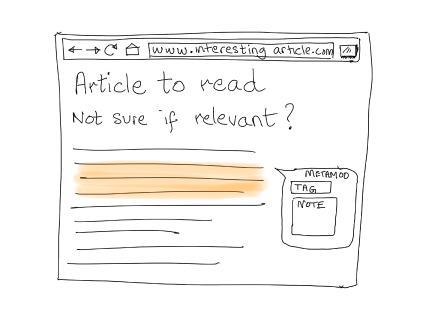 www.interesting article.com
Article to read
Not sure if relevant?
METAMOD
TAG
NOTE